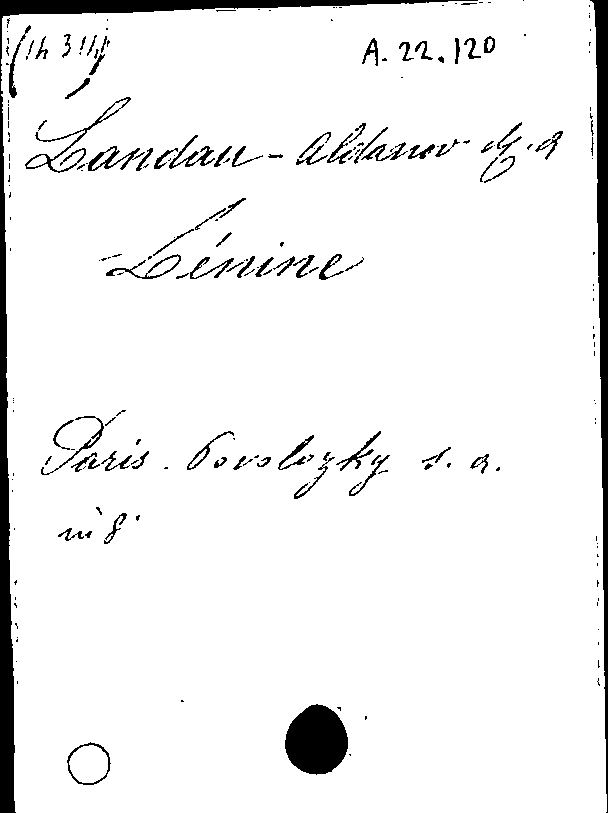 A.22.120
Landau-Aldanov M.A
Lénine
Paris. Povolozky s. a.
in 8°